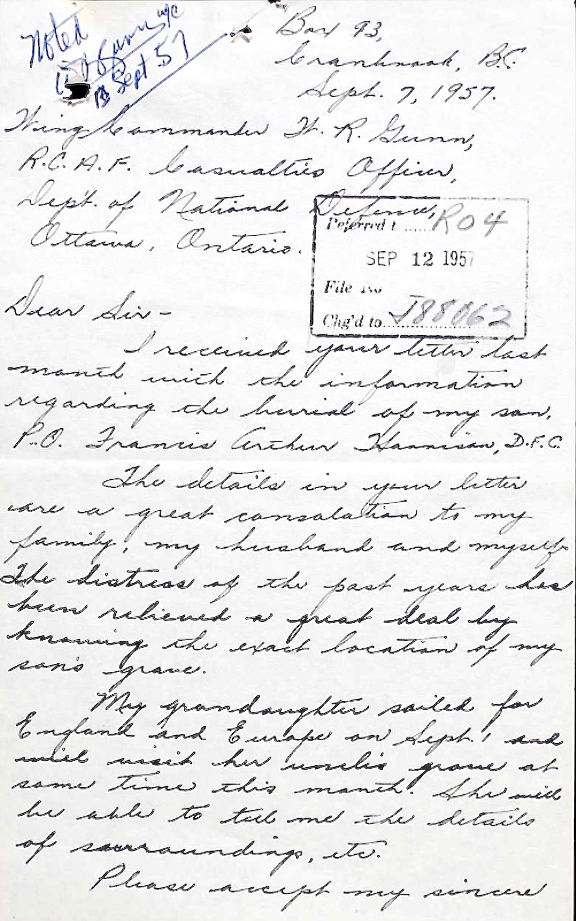 Noted
Gunn w/c
13 Sept 57
Box 93,
Cranbrook, B.C.
Sept. 7, 1957.
Wing Commander W. R. Gunn,
R.C.A.F. Casualties Officer,
Dep't. of National Defence,
Ottawa, Ontario.
Referred t ...... R04
SEP 12 1957
File No
Chg'd to J88062
Dear Sir -
I received your letter last
month with the information
regarding the burial of my son,
P.O. Francis Arthur Hannison, D.F.C.
The details in your letter
are a great consolation to my
family, my husband and myself.
The distress of the past years has
been relieved a great deal by
knowing the exact location of my
son's grave.
My grandaughter sailed for
England and Europe on Sept. 1 and
will visit her uncle's grave at
some time this month. She will
be able to tell me the details
of surroundings, etc.
Please accept my sincere